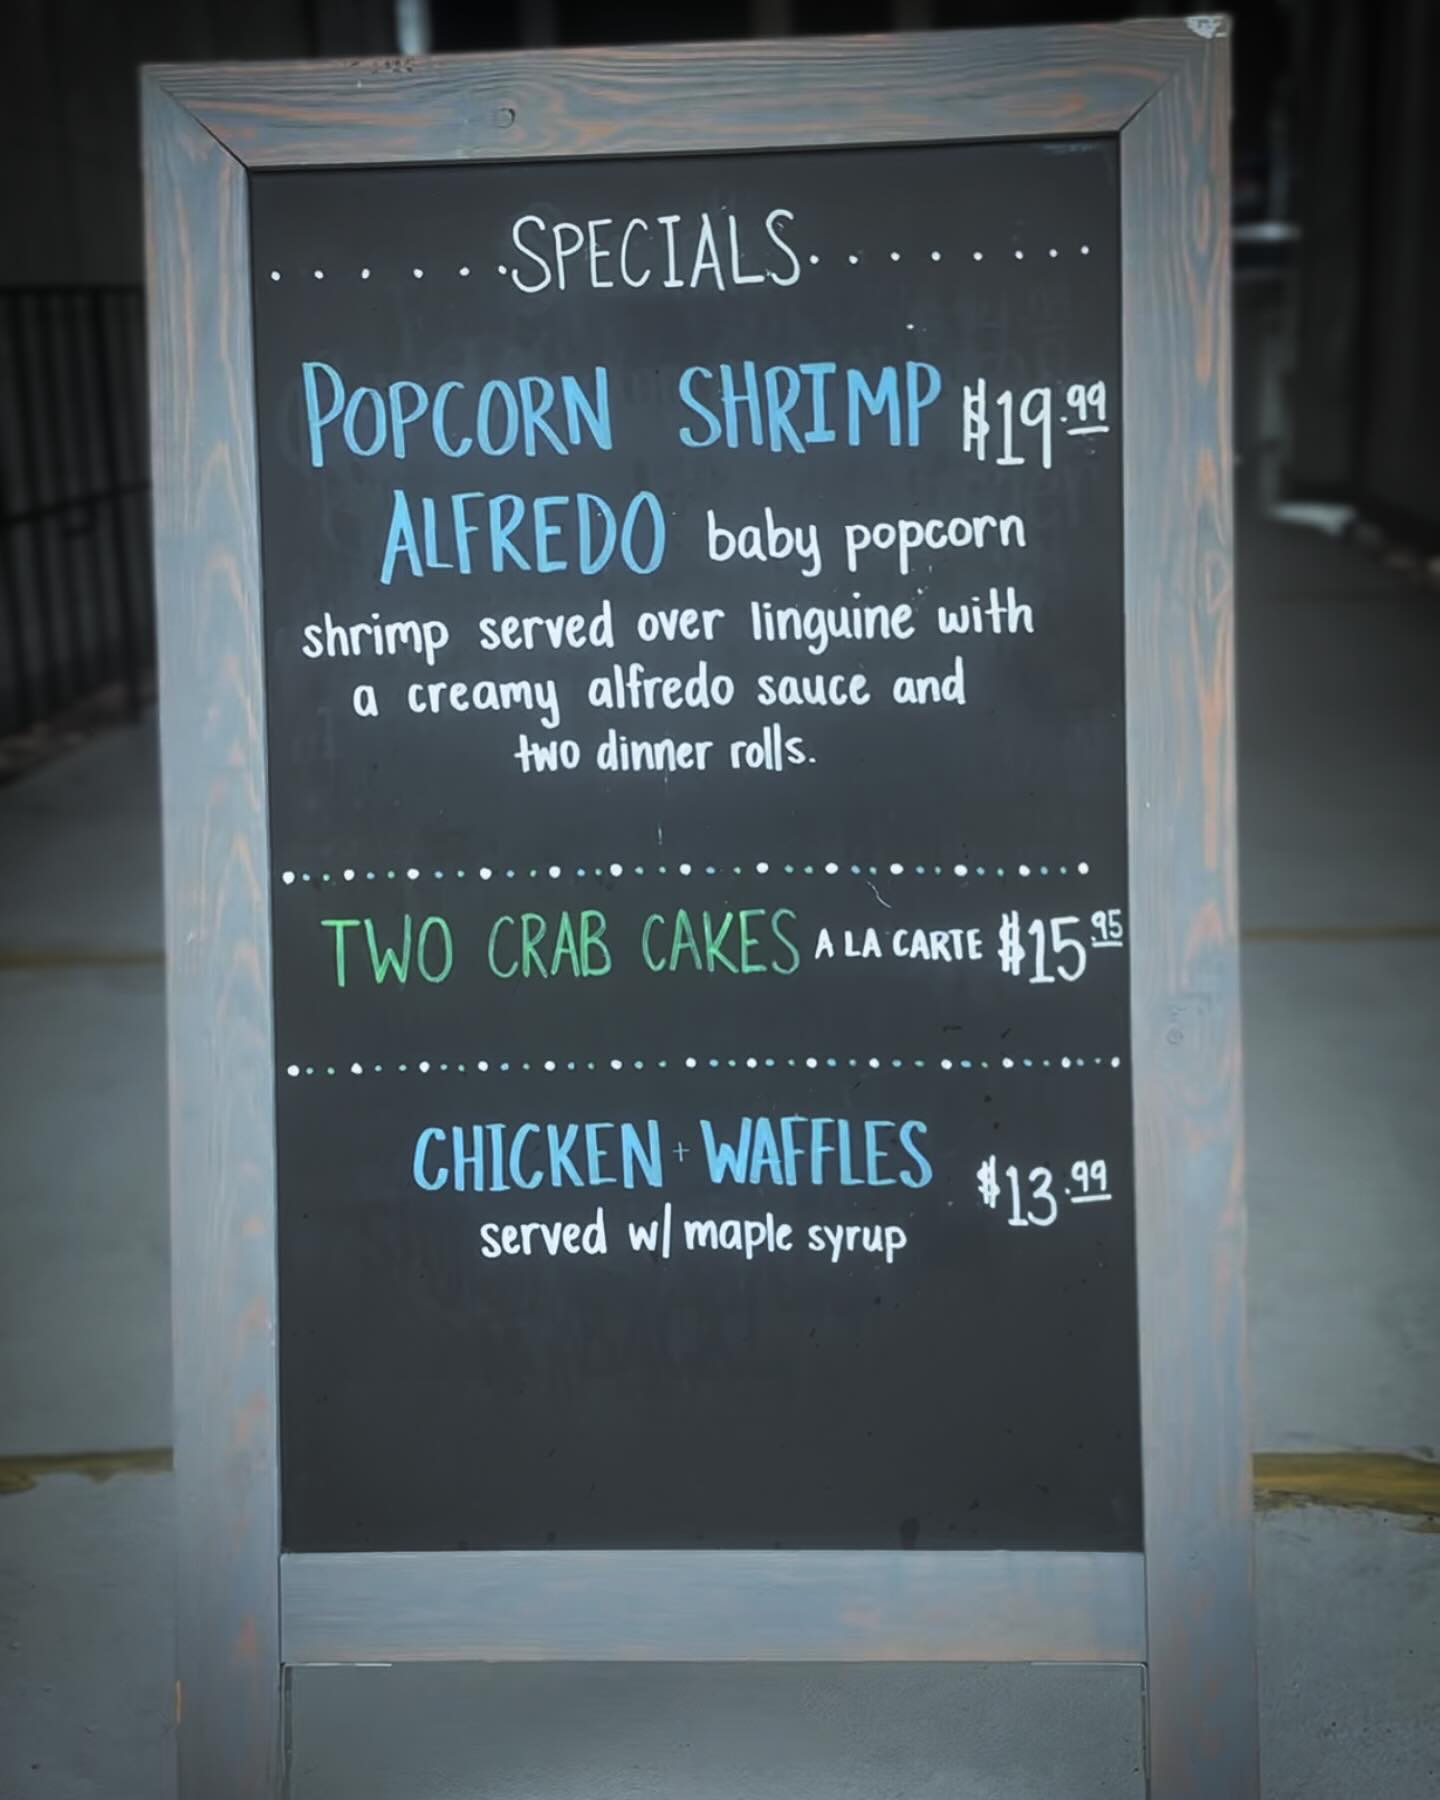 SPECIALS
POPCORN SHRIMP $19.99
ALFREDO baby popcorn
shrimp served over linguine with
a creamy alfredo sauce and
two dinner rolls.
TWO CRAB CAKES A LA CARTE $15 95
CHICKEN + WAFFLES $13.99
served w/ maple syrup